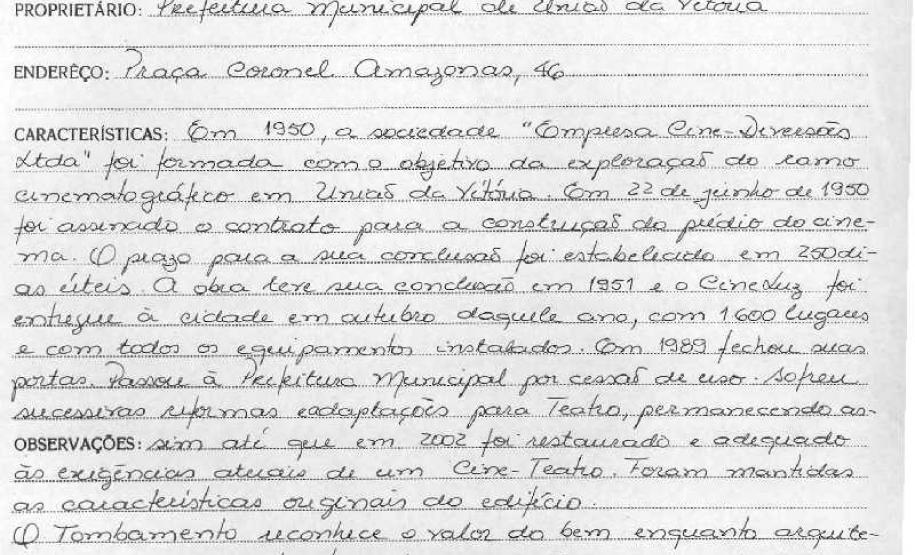 PROPRIETÁRIO: Prefeitura Municipal de União da Vitória
ENDERÊÇO: Praça Coronel Amazonas, 46
CARACTERÍSTICAS: Em 1950, a sociedade "Empresa Cine-Diversões
Ltda" foi formada com o objetivo da exploração do ramo
cinematográfico em União da Vitória. Em 22 de junho de 1950
foi assinado o contrato para a construção do prédio do cine-
ma. O prazo para a sua conclusão foi estabelecido em 250 di-
as úteis. A obra teve sua conclusão em 1951 e o Cine Luz foi
entregue à cidade em outubro daquele ano, com 1600 lugares
e com todos os equipamentos instalados. Em 1989 fechou suas
portas. Passou à Prefeitura Municipal por cessão de uso. Sofreu
sucessivas reformas e adaptações para Teatro, permanecendo as-
OBSERVAÇÕES: sim até que em 2002 foi restaurado e adequado
às exigências atuais de um Cine-Teatro. Foram mantidas
as características originais do edifício.
O Tombamento reconhece o valor do bem enquanto arquite-